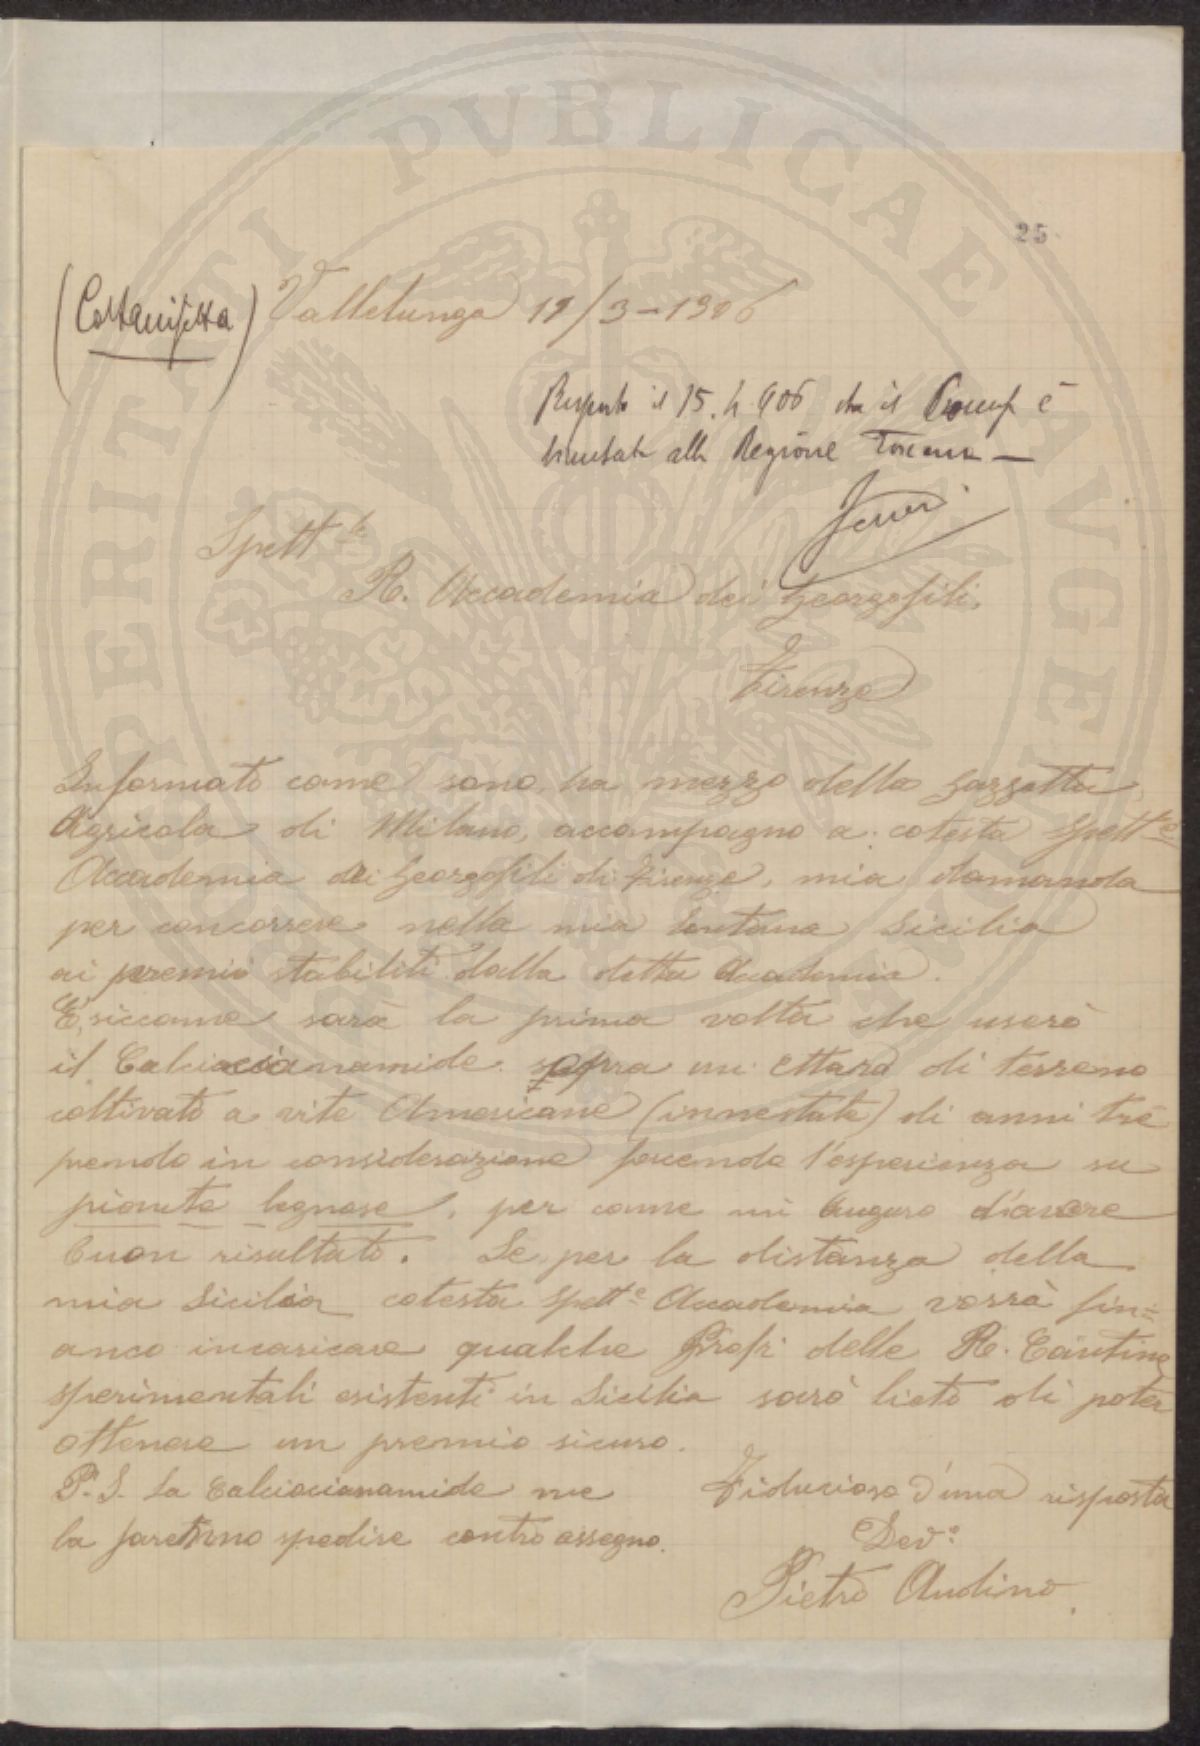 25
(Caltanisetta) Vallelunga 12/3-1906
Risposto il 15.4.906 che il Concorso è
limitato alla Regione Toscana —
Spett.le
R. Accademia dei Georgofili.
Firenze
Informato come sono, ha mezzo della Gazzetta
Agricola di Milano, accompagno a cotesta Spett.le
Accademia dei Georgofili di Firenze, mia domanda
per concorrere nella mia lontana Sicilia
ai premii stabiliti dalla detta Accademia.
E, siccome sarà la prima volta che userò
il Calciocianamide sopra un Ettaro di terreno
coltivato a vite Americane (innestate) di anni tre
prendo in considerazione facendo l'esperienza su
pianta legnose, per come mi auguro d'avere
buon risultato. Se per la distanza della
mia Sicilia cotesta Spett.e Accademia vorrà fin=
anco incaricare qualche Profr delle R. Cantine
sperimentali esistenti in Sicilia sarò lieto di poter
ottenere un premio sicuro.
P.S. La Calciocianamide me
la faranno spedire contro assegno.
Fiducioso d'una risposta
Dev.o
Pietro Audino
PROSPERITATI PVBLICAE AVGENDAE